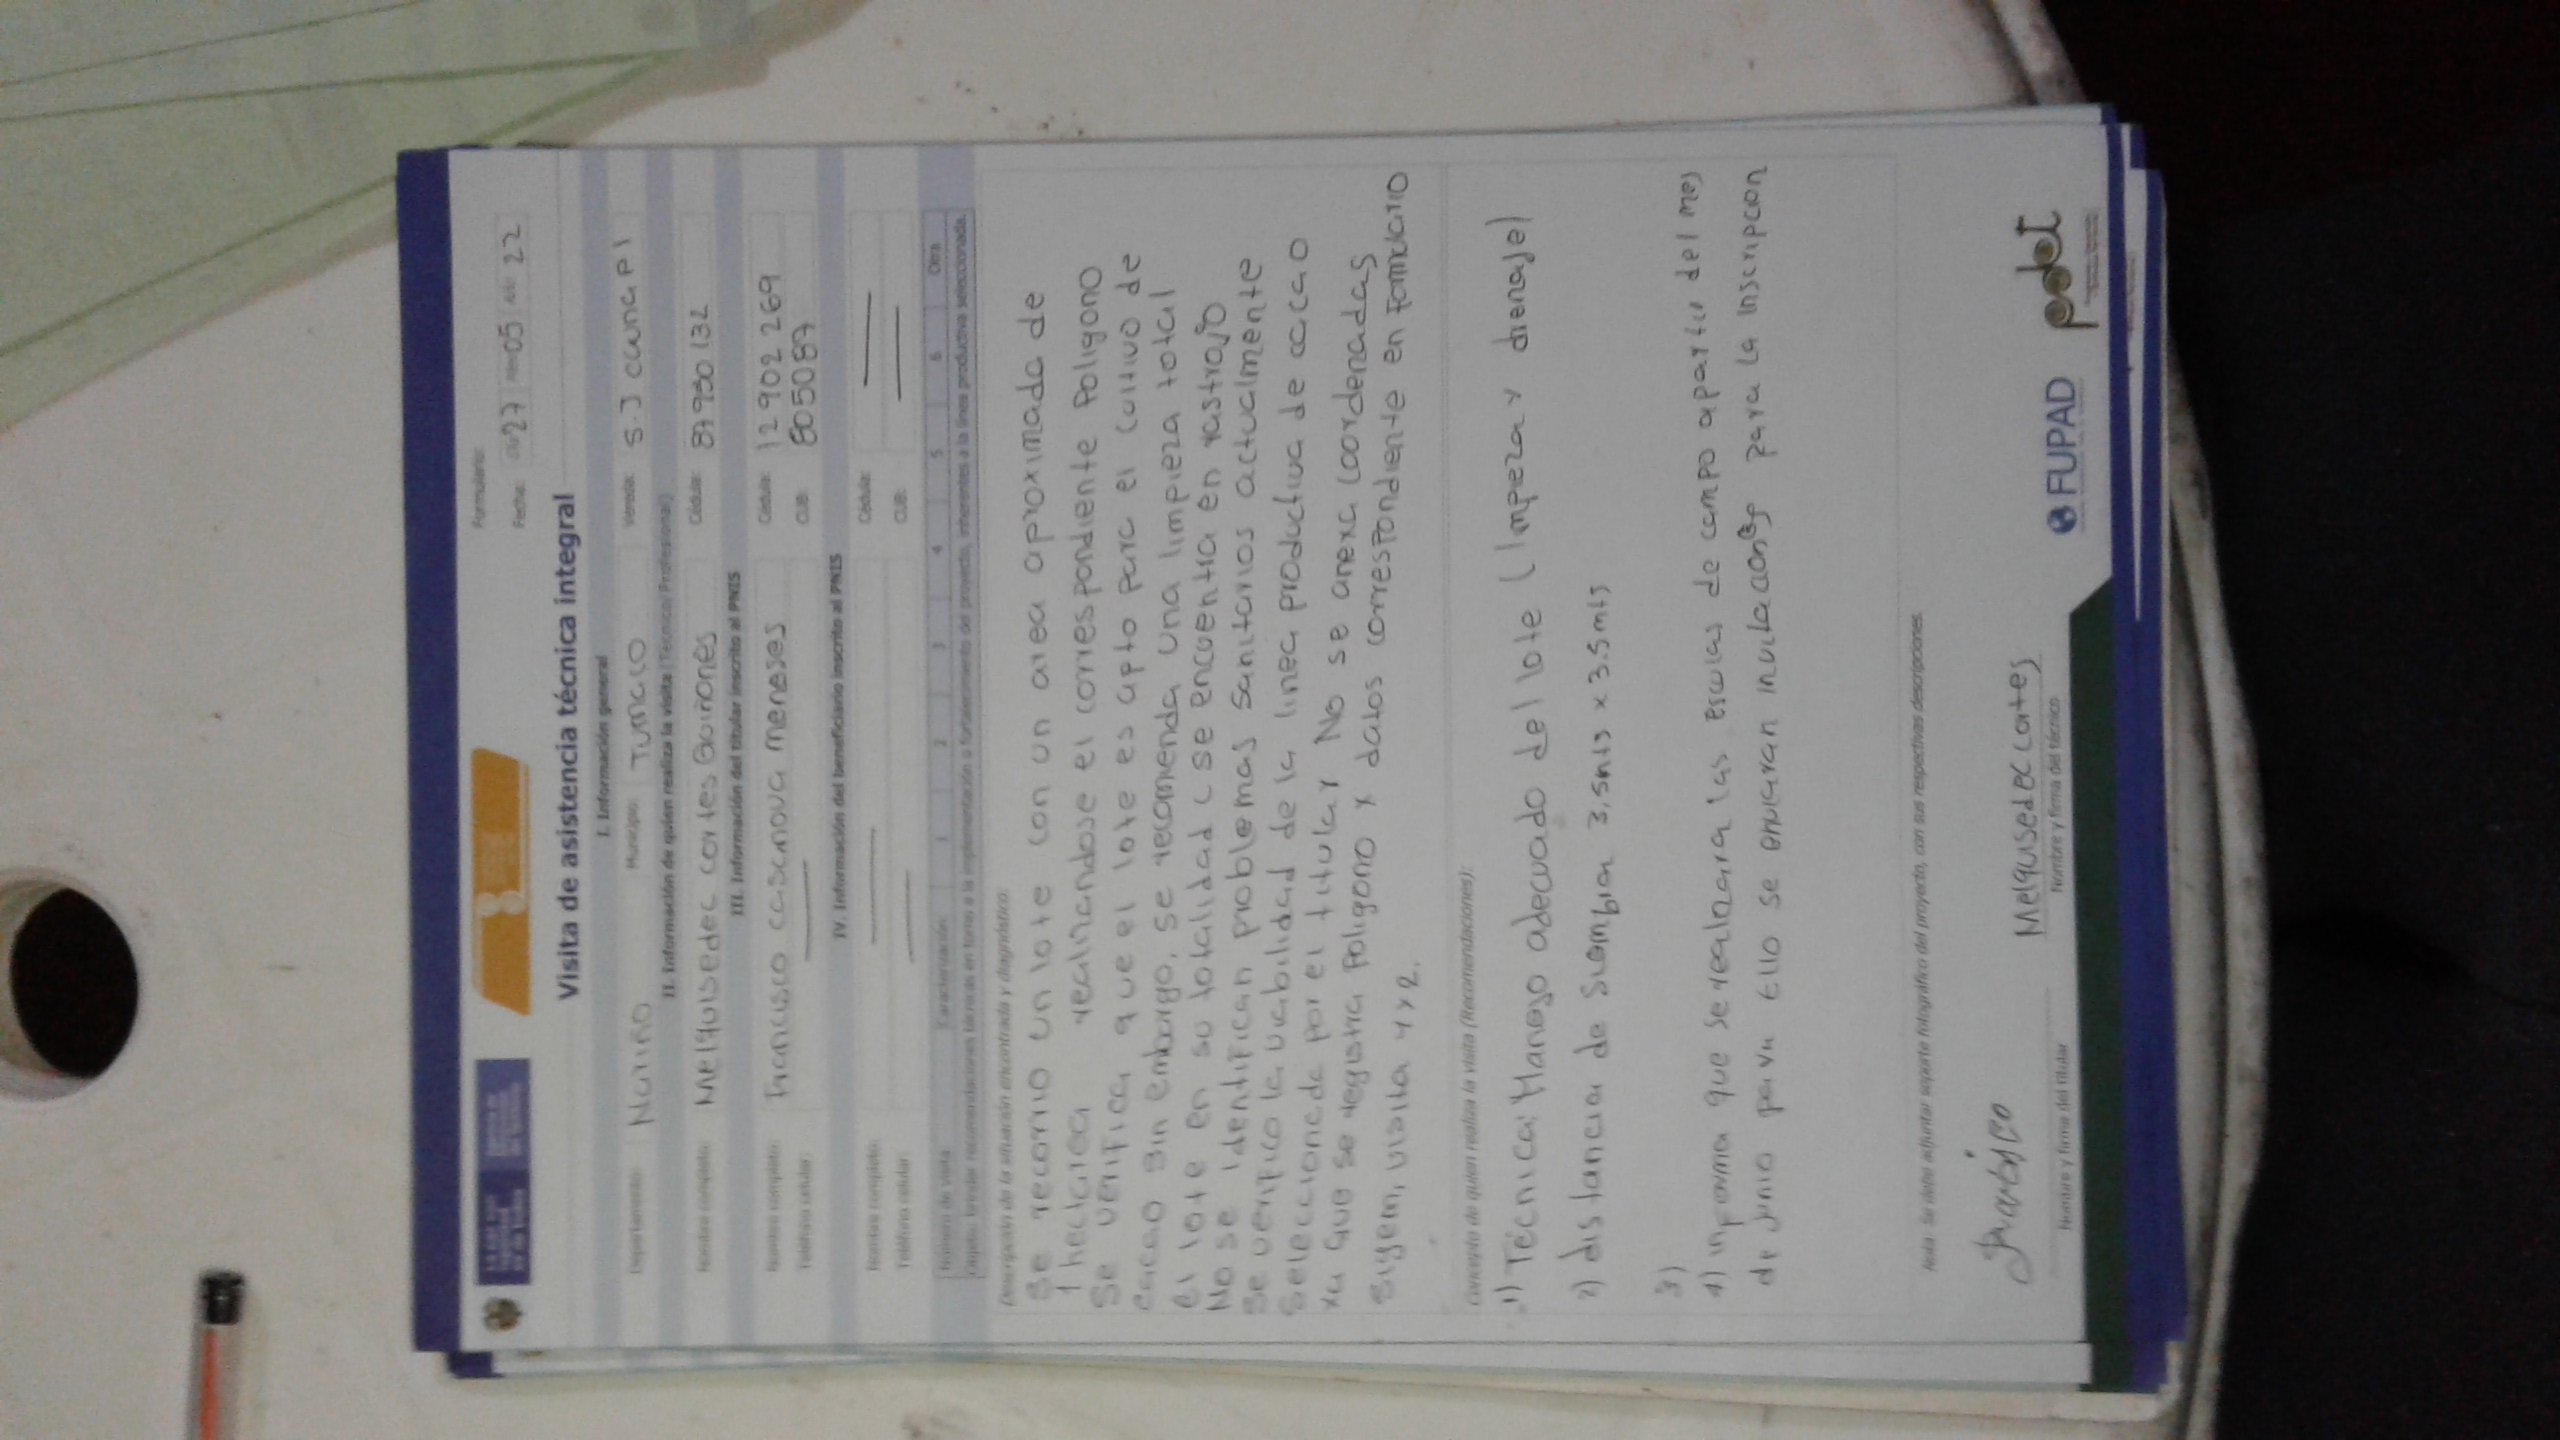 Formulario:
Fecha: Día 27 Mes 05 Año 22
Visita de asistencia técnica integral
I. Información general
Departamento: Nariño Municipio: Tumaco Vereda: S.J Cunapi
II. Información de quien realiza la visita (Técnico/Profesional)
Nombre completo: Melquisedec cortes Quiñones Cédula: 87950132
III. Información del titular inscrito al PNIS
Nombre completo: Francisco casanova meneses Cédula: 12902269
Teléfono celular: CUB: 8050087
IV. Información del beneficiario inscrito al PNIS
Nombre completo: Cédula:
Teléfono celular: CUB:
Número de visita Caracterización 1 2 3 4 5 6 Otra
Objeto: brindar recomendaciones técnicas en torno a la implementación o fortalecimiento del proyecto, inherentes a la línea productiva seleccionada.
Descripción de la situación encontrada y diagnóstico:
Se recorrio un lote con un area aproximada de
1 hectarea realizandose el correspondiente Poligono
Se verifica que el lote es apto para el cultivo de
cacao sin embargo, se recomienda una limpieza total
el lote en su totalidad (se encuentra en rastrojo
No se identifican problemas sanitarios actualmente
Se verifico la viabilidad de la linea productiva de cacao
seleccionada por el titular No se anexa coordenadas
ya que se registra Poligono y datos correspondiente en Formulario
Sigem, visita 1 y 2.
Concepto de quien realiza la visita (Recomendaciones):
1) Técnica: Manejo adecuado del lote (limpeza y drenaje)
2) distancia de siembra 3.5mts x 3.5mts
3)
4) informa que se realizara las Esculas de campo apartir del mes
de Junio para Ello se enviaran invitaciones para la inscripcion
Nota: Se debe adjuntar soporte fotográfico del proyecto, con sus respectivas descripciones.
Francisco Melquisedec cortes
Nombre y firma del titular Nombre y firma del técnico
FUPAD pdet